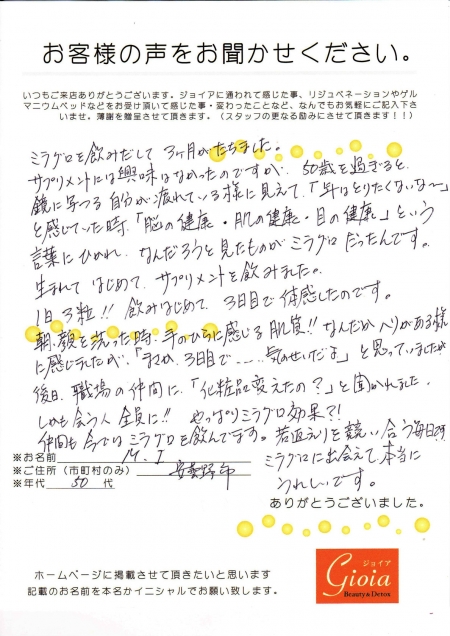 お客様の声をお聞かせください。
いつもご来店ありがとうございます。ジョイアに通われて感じた事、リジュベネーションやゲル
マニウムベッドなどをお受け頂いて感じた事・変わったことなど、なんでもお気軽にご記入下さ
いませ。薄謝を贈呈させて頂きます。(スタッフの更なる励みにさせて頂きます!!)
ミラグロを飲みだして 3ヶ月がたちました。
サプリメントには興味はなかったのですが、50歳を過ぎると、
鏡に写つる自分が疲れている様に見えて、「年はとりたくないな〜」
と感じていた時、「脳の健康・肌の健康・目の健康」という
言葉にひかれ、なんだろうと見たものがミラグロだったんです。
生まれてはじめて、サプリメントを飲みました。
1日3粒!! 飲みはじめて、3日目で体感したのです。
朝、顔を洗った時、手のひらに感じる肌質!! なんだかハリがある様
に感じたんだが、「まさか、3日目で……気のせいだよ」と思っていましたが
後日、職場の仲間に、「化粧品変えたの?」と聞かれました。
しかも会う人全員に!! やっぱりミラグロ効果?!
仲間も今ではミラグロを飲んでます。若返りを競い合う毎日です
※お名前 M.I
ミラグロに出会えて本当に
※ご住所(市町村のみ) 安曇野市
うれしいです。
※年代 50 代
ありがとうございました。
ホームページに掲載させて頂きたいと思います
記載のお名前を本名かイニシャルでお願い致します。
ジョイア
Gioia
Beauty&Detox